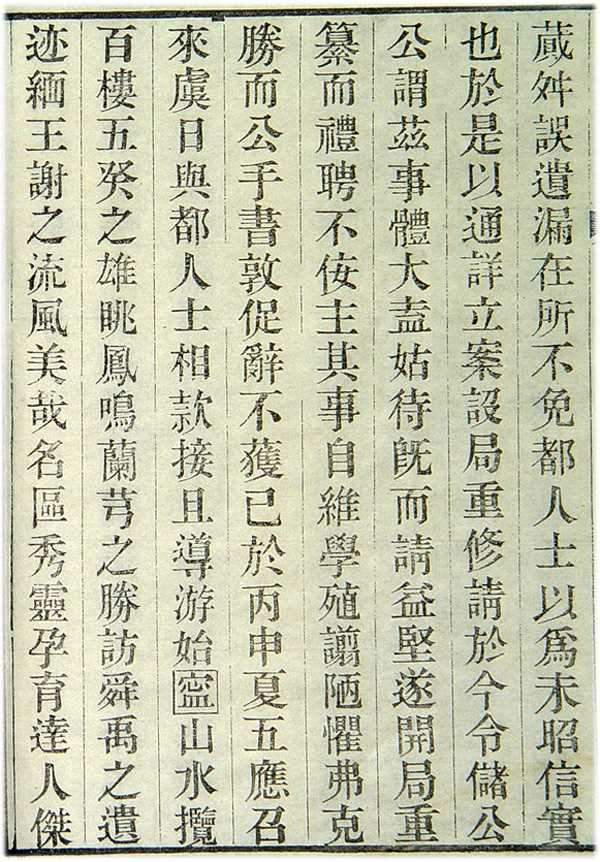 蕆舛誤遺漏在所不免都人士以爲未昭信實
也於是以通詳立案設局重修請於今令儲公
公謂茲事體大盍姑待旣而請益堅遂開局重
纂而禮聘不侫主其事自維學殖謭陋懼弗克
勝而公手書敦促辭不獲已於丙申夏五應召
來虞日與都人士相款接且導游始寍山水攬
百樓五癸之雄眺鳳鳴蘭芎之勝訪舜禹之遺
迹緬王謝之流風美哉名區秀靈孕育達人傑